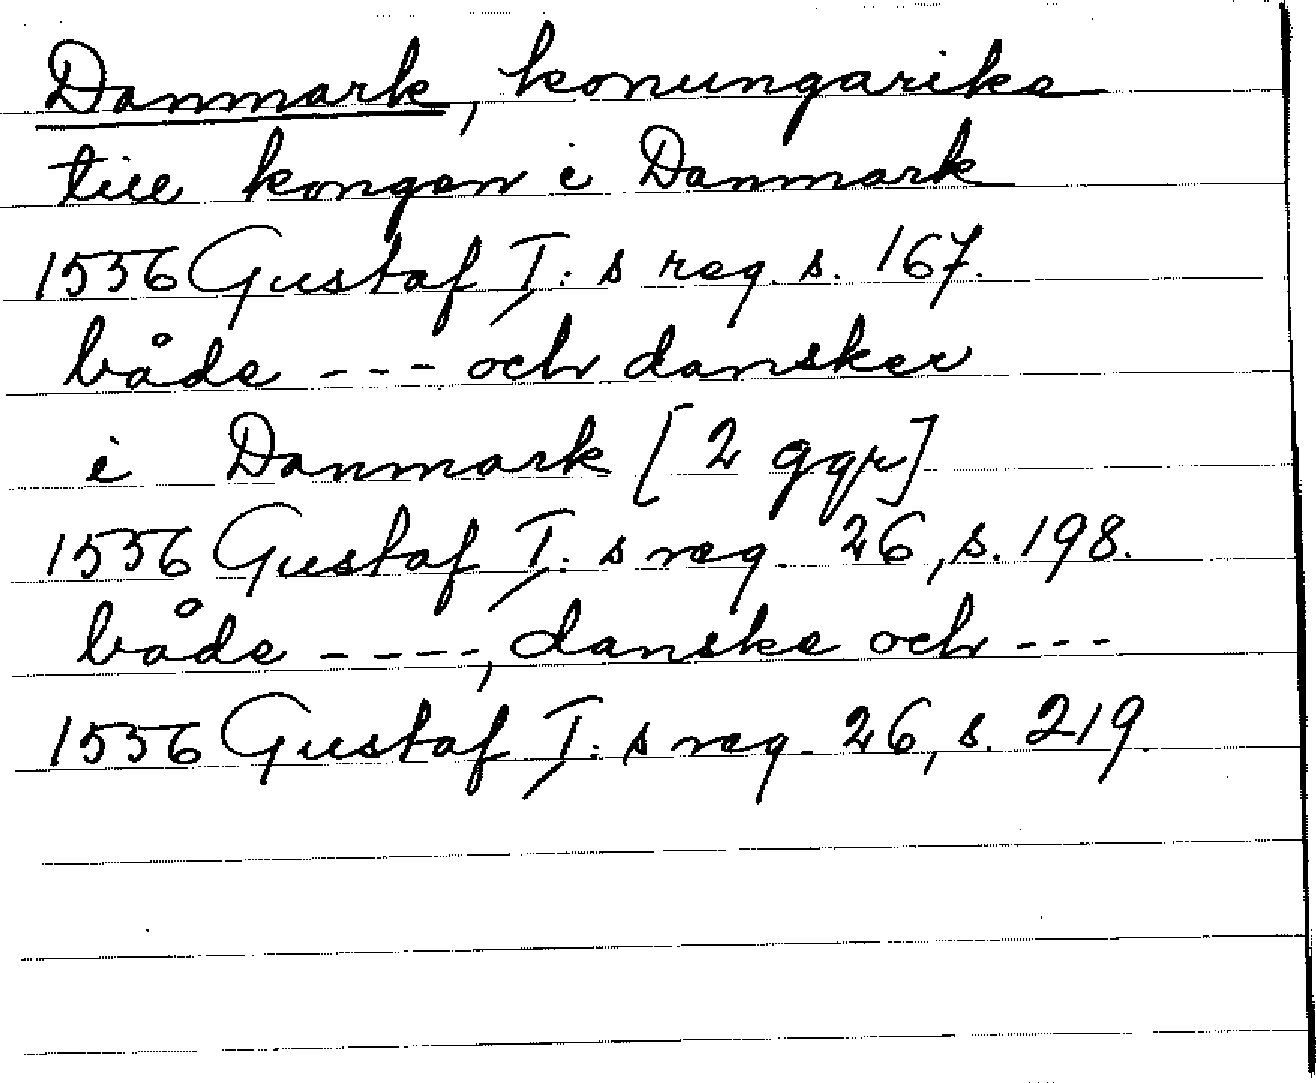 Danmark, konungarike
till kongen i Danmark
1556 Gustaf I:s reg. s. 167.
både --- och dansker
i Danmark [2 ggr]
1556 Gustaf I:s reg. 26, s. 198.
både ----, danske och ---
1556 Gustaf I:s reg. 26, s. 219.